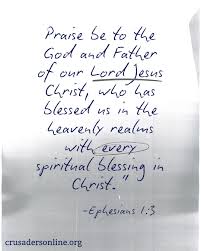 Praise be to the
God and Father
of our Lord Jesus
Christ, who has
blessed us in the
heavenly realms
with every
spiritual blessing in
Christ."
-Ephesians 1:3
crusadersonline.org